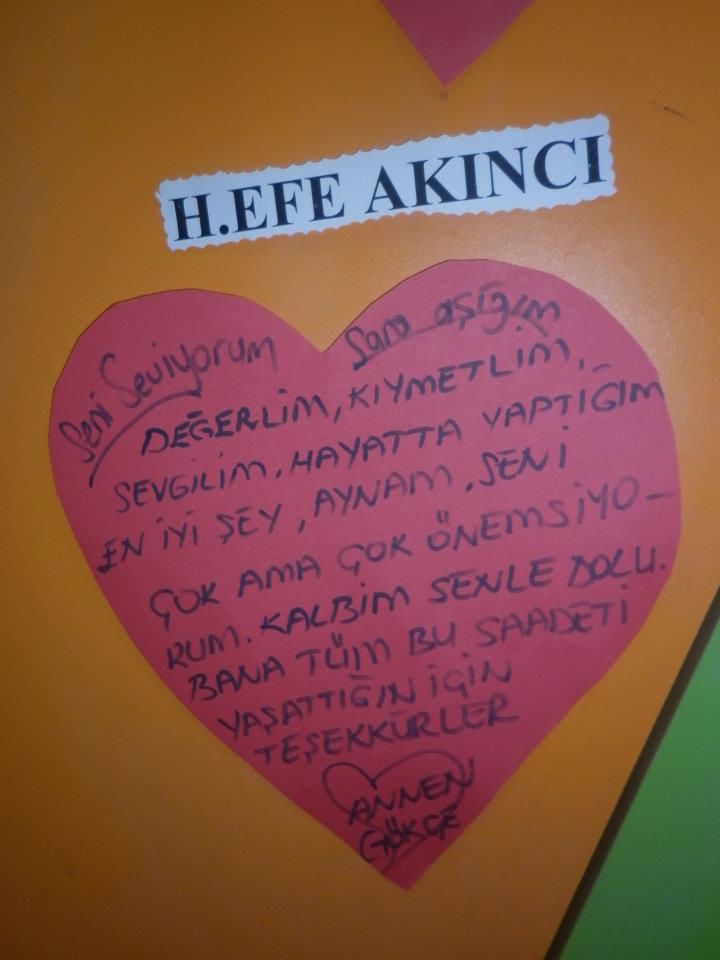 H.EFE AKINCI
Seni Seviyorum Sana aşığım
DEĞERLİM, KIYMETLİM,
SEVGİLİM, HAYATTA YAPTIĞIM
EN İYİ ŞEY, AYNAM, SENİ
ÇOK AMA ÇOK ÖNEMSİYO-
RUM. KALBİM SENLE DOLU.
BANA TÜM BU SAADETİ
YAŞATTIĞIN İÇİN
TEŞEKKÜRLER
ANNEN
GÖKÇE